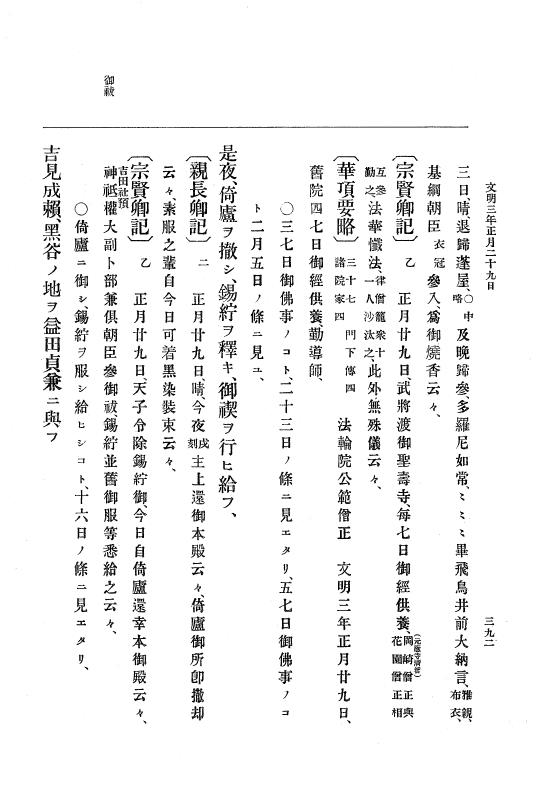 文明三年正月二十九日
三九二
三日晴退歸蓬屋、○中略及晩歸參多羅尼如常、〻〻〻畢飛鳥井前大納言、雅親、布衣、
基綱朝臣衣冠參入、爲御燒香云々、
〔宗賢卿記〕乙 正月廿九日、武將渡御聖壽寺、每七日御經供養、岡崎僧正與花園僧正相
互參勤之、法華懺法、律僧龍衆十一人沙汰之、此外無殊儀云々、
〔華頂要略〕三十七 門下傳四諸院家四 法輪院公範僧正 文明三年正月廿九日、
舊院四七日御經供養、勤導師、
○三七日御佛事ノコト、二十三日ノ條ニ見エタリ、五七日御佛事ノコ
ト二月五日ノ條ニ見ユ、
御祓
是夜、倚廬ヲ撤シ、錫紵ヲ釋キ、御禊ヲ行ヒ給フ、
〔親長卿記〕二 正月廿九日晴、今夜戌刻主上還御本殿云々、倚廬御所卽撤却
云々、素服之輩自今日可着黑染裝束云々、
〔宗賢卿記〕乙 正月廿九日、天子令除錫紵御、今日自倚廬還幸本御殿云々、
吉田社預
神祇權大副卜部兼俱朝臣參御祓、錫紵並舊御服等悉給之云々、
○倚廬ニ御シ、錫紵ヲ服シ給ヒシコト、十六日ノ條ニ見エタリ、
吉見成賴、黑谷ノ地ヲ益田貞兼ニ與フ